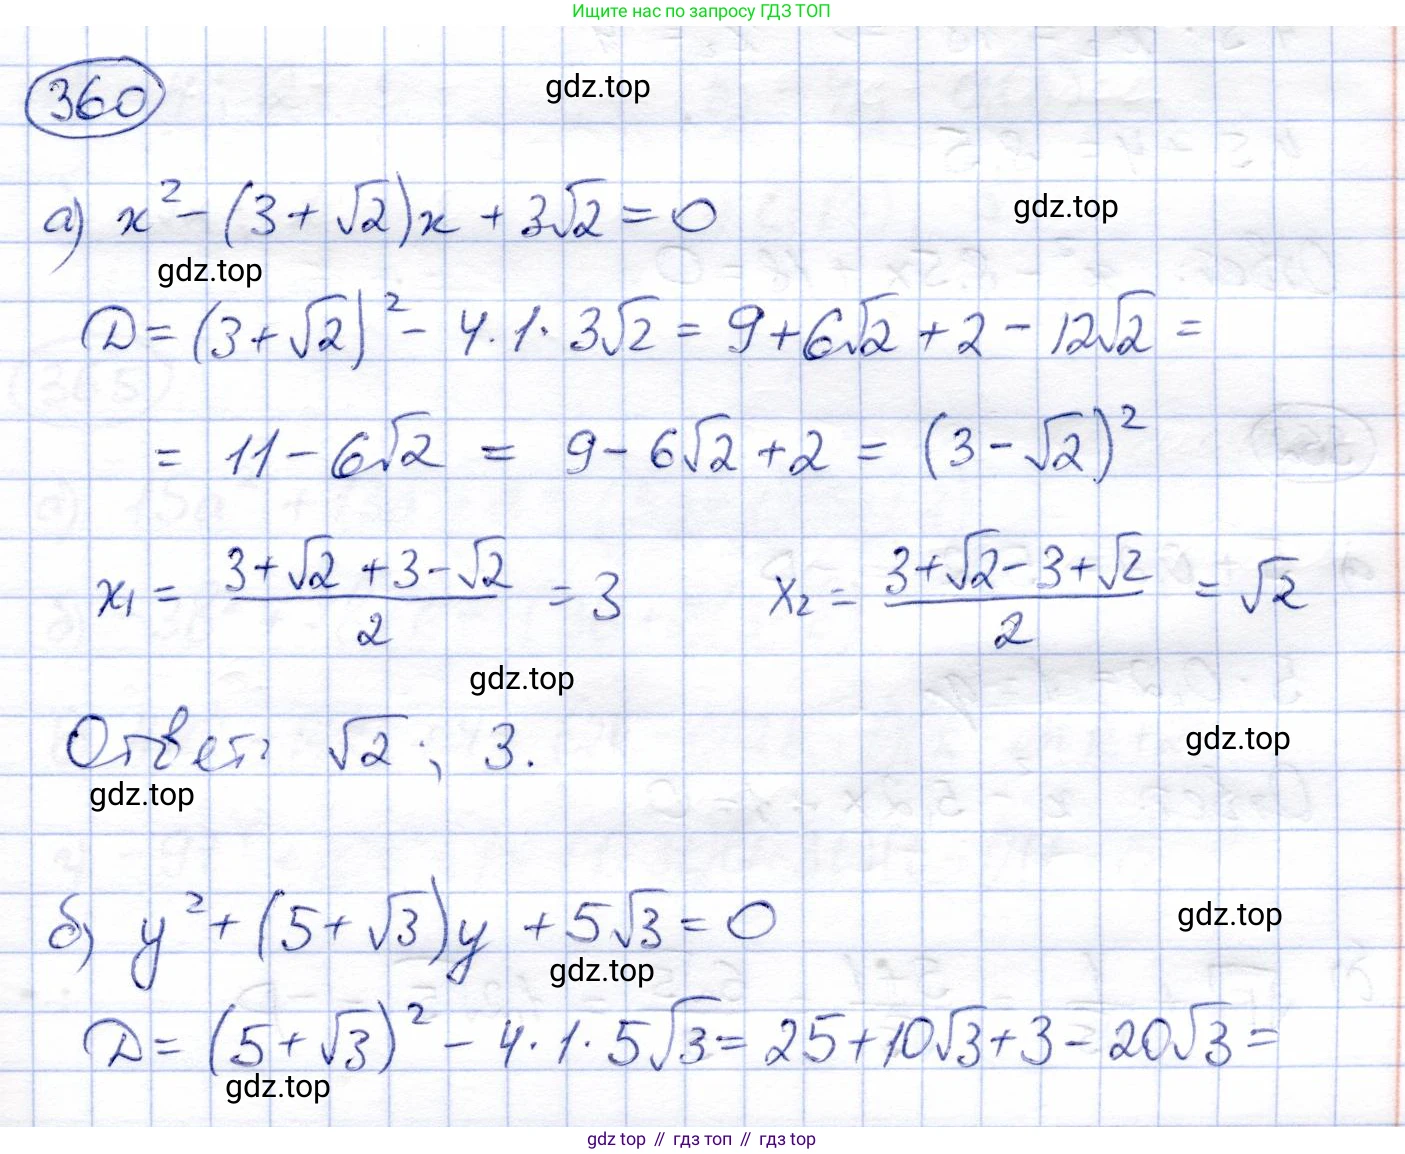 Ищите нас по запросу ГДЗ ТОП
360
gdz.top
а) x² - (3 + √2)x + 3√2 = 0
gdz.top
gdz.top
D = (3 + √2)² - 4 · 1 · 3√2 = 9 + 6√2 + 2 - 12√2 =
= 11 - 6√2 = 9 - 6√2 + 2 = (3 - √2)²
x₁ = (3 + √2 + 3 - √2)/2 = 3 x₂ = (3 + √2 - 3 + √2)/2 = √2
gdz.top
Ответ: √2; 3.
gdz.top
gdz.top
б) y² + (5 + √3)y + 5√3 = 0
gdz.top
gdz.top
D = (5 + √3)² - 4 · 1 · 5√3 = 25 + 10√3 + 3 - 20√3 =
gdz.top
gdz top // гдз топ // гдз top